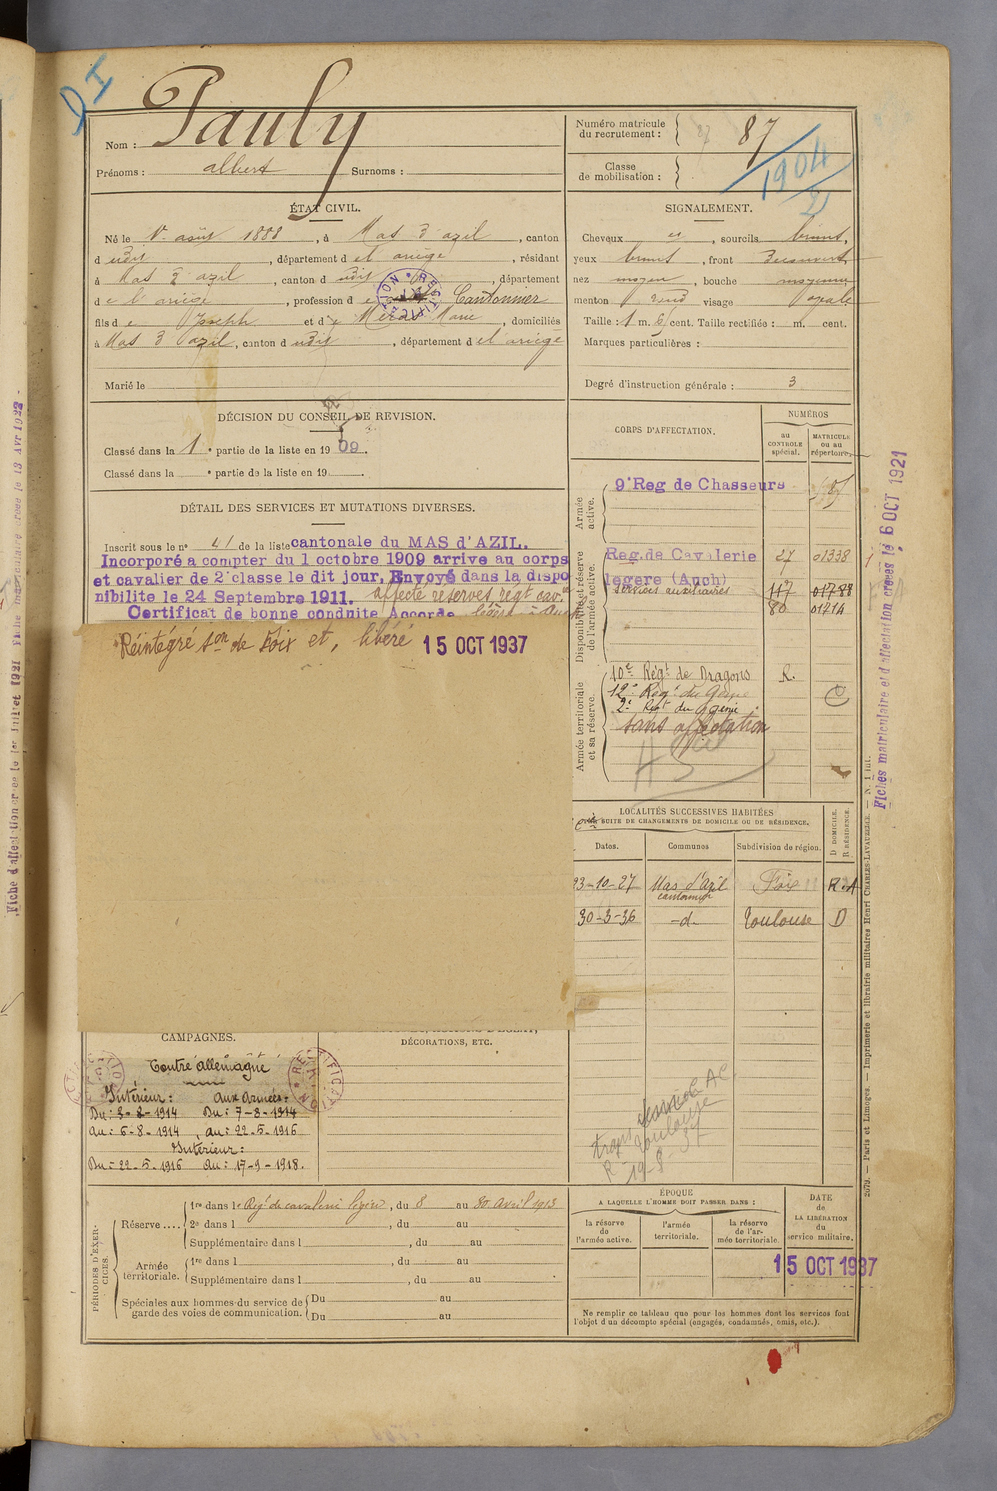 DI
Pauly
Nom :
Prénoms : albert Surnoms :
Numéro matricule du recrutement : 87
Classe de mobilisation : 1904
21
ÉTAT CIVIL.
Né le 1er août 1888, à Mas d'azil, canton
dudit, département de l'ariège, résidant
à Mas d'azil, canton dudit, département
de l'ariège, profession de Cantonnier
fils de Joseph et de Méras Marie, domiciliés
à Mas d'azil, canton dudit, département de l'ariège
Marié le
RECTIFICATION
SIGNALEMENT.
Cheveux et, sourcils bruns,
yeux bruns, front découvert,
nez moyen, bouche moyenne
menton rond visage ovale
Taille : 1 m. cent. Taille rectifiée : m. cent.
Marques particulières :
Degré d'instruction générale : 3
DÉCISION DU CONSEIL DE REVISION.
Classé dans la 1e partie de la liste en 1909.
Classé dans la e partie de la liste en 19
DÉTAIL DES SERVICES ET MUTATIONS DIVERSES.
Inscrit sous le no 41 de la liste cantonale du MAS d'AZIL.
Incorporé a compter du 1 octobre 1909 arrive au corps
et cavalier de 2e classe le dit jour. Envoyé dans la dispo
nibilite le 24 Septembre 1911. affecté réserves régt cavie
Certificat de bonne conduite Accorde légère à Auch
Réintégré son de Foix et, libéré 15 OCT 1937
CORPS D'AFFECTATION.
NUMÉROS
au CONTROLE spécial.
MATRICULE ou au répertoire.
Armée active.
9e Reg de Chasseurs
Disponibilité et réserve de l'armée active.
Reg. de Cavalerie 27 01338
legere (Auch)
Services auxiliaires 117 01788
80 01214
Armée territoriale et sa réserve.
10e Régt de Dragons R.
12e Régt du Génie
2e Régt du Génie
sans affectation
LOCALITÉS SUCCESSIVES HABITÉES
PAR SUITE DE CHANGEMENTS DE DOMICILE OU DE RÉSIDENCE.
Dates. Communes Subdivision de région. D DOMICILE. R RÉSIDENCE.
23-10-27 Mas d'azil Foix R.A
cantonnier
30-3-36 -d- Toulouse D
CAMPAGNES.
DÉCORATIONS, ETC.
Contre allemagne
Intérieur : aux armées :
Du : 3-8-1914 Du : 7-8-1914
au : 6-8-1914, au : 22-5-1916
Intérieur :
Du : 22-5-1916 au : 17-9-1918.
RECTIFICATION
Toulouse
19-8-37
PÉRIODES D'EXERCICES.
Réserve....
1re dans le Régt de cavalerie légère, du 8 au 30 avril 1913
2e dans l , du au
Supplémentaire dans l , du au
Armée territoriale.
1re dans l , du au
Supplémentaire dans l , du au
Spéciales aux hommes du service de garde des voies de communication.
Du au
Du au
ÉPOQUE
A LAQUELLE L'HOMME DOIT PASSER DANS :
la réserve de l'armée active.
l'armée territoriale.
la réserve de l'armée territoriale.
DATE de LA LIBÉRATION du service militaire.
15 OCT 1937
Ne remplir ce tableau que pour les hommes dont les services font
l'objet d'un décompte spécial (engagés, condamnés, omis, etc.).
Fiches matriculaire et d'affectation créées le 6 OCT 1921
2679. — Paris et Limoges. — Imprimerie et librairie militaires Henri CHARLES-LAVAUZELLE. — N. 1 int.